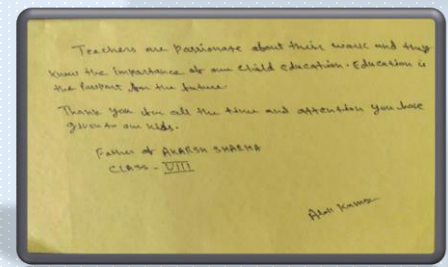 Teachers are Passionate about their work and they
know the importance of our child education. Education is
the Passport for the future.
Thank you for all the time and attention you have
given to our kids.
Father of AKARSH SHARMA
CLASS - VIII
Kumar